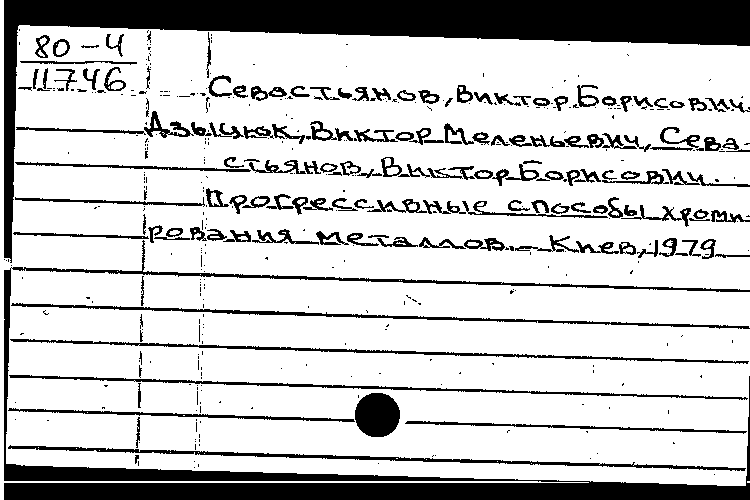 80-4
11746
Севастьянов, Виктор Борисович.
Дзыцюк, Виктор Меленьевич, Сева-
стьянов, Виктор Борисович.
Прогрессивные способы хроми-
рования металлов. - Киев, 1979